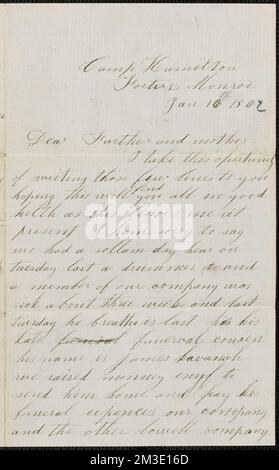 Camp Hamilton
Fortres Monroe
Jan 16th 1862
Dear Farther and mother
I take this opertunity
of writing those few lines to you
hoping this will find you all in good
helth as she leaves me at
present I am sorry to say
we had a sollam day hear on
tuesday last a drummer and
a member of our company was
sick about three weeks and last
tuesday he breathed is last his
Kate funeral
his name is James Cavanah
we raised monney enufh to
send him home and pay his
funeral expences our company
and the other lowell company
alamy
Image ID: 2M3E16D
www.alamy.com